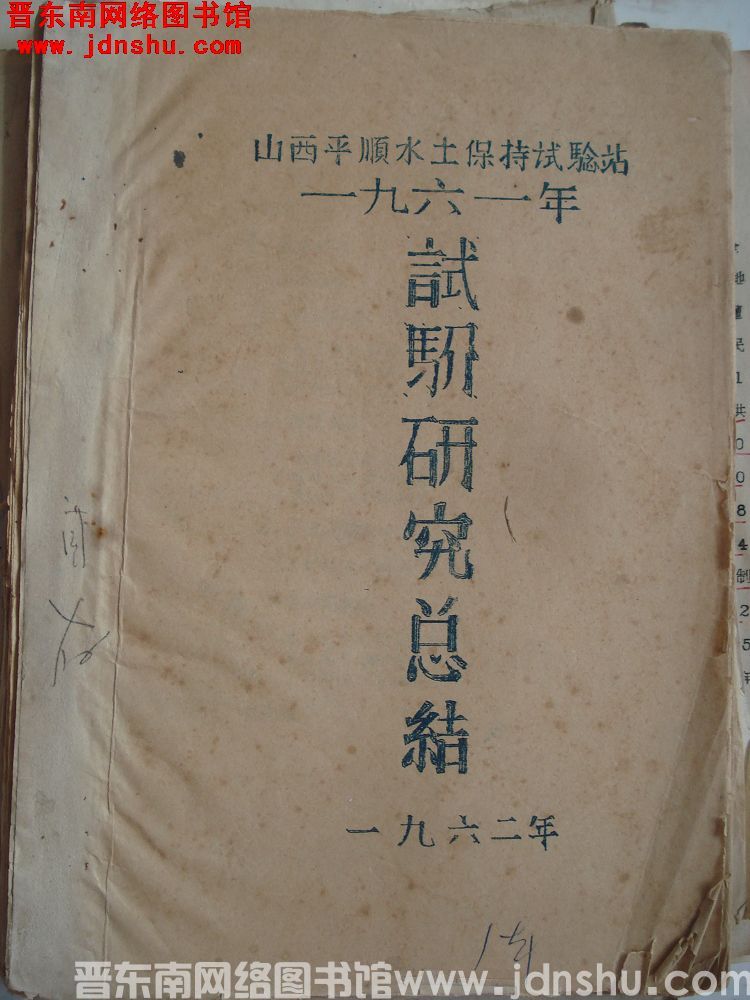 晋东南网络图书馆
www.jdnshu.com
山西平順水土保持试騐站
一九六一年
試馹研究总結
一九六二年
地
民
1
共
0
0
8
4
制
2
5
晋东南网络图书馆www.jdnshu.com